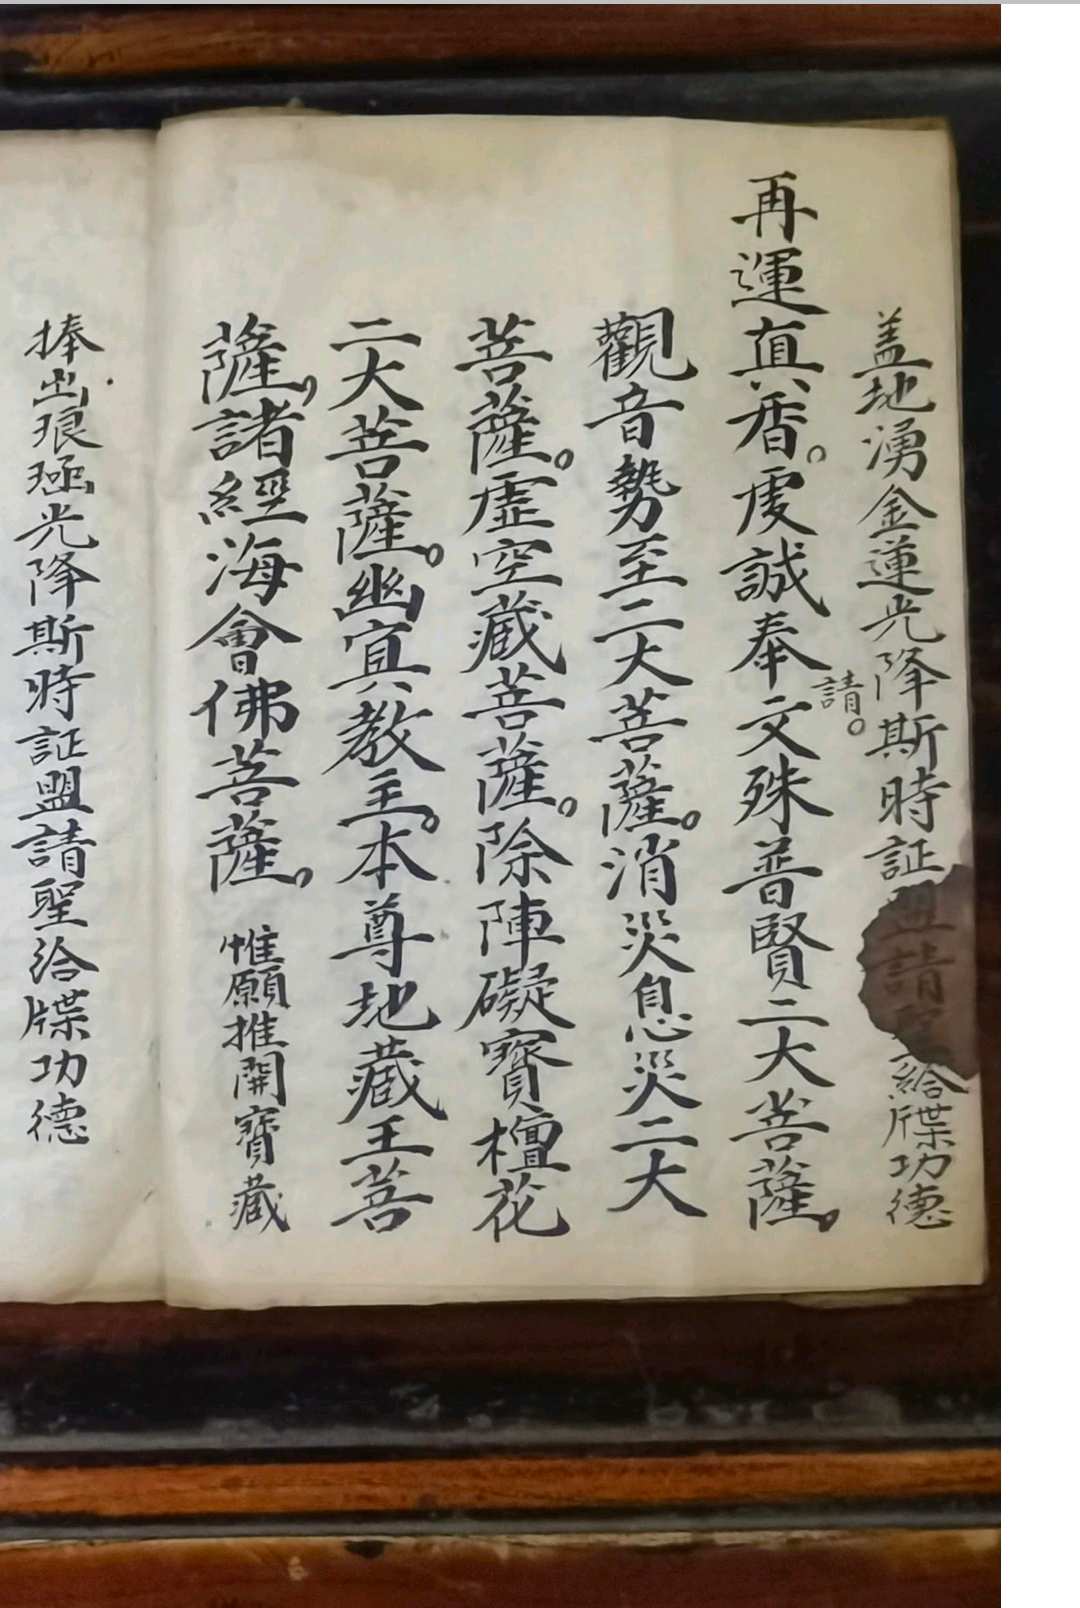 盖地湧金蓮光降斯時証盟請聖給牒功德
再運真香。虔誠奉請。文殊普賢二大菩薩。
觀音勢至二大菩薩。消災息災二大
菩薩。虛空藏菩薩。除陣礙寶檀花
二大菩薩。幽冥教主。本尊地藏王菩
薩，諸經海會佛菩薩，惟願推開寶藏
捧出琅函光降斯時証盟請聖給牒功德